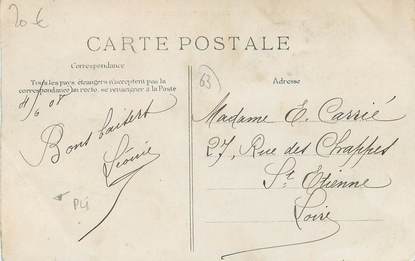 20 €
CARTE POSTALE
Correspondance
Tous les pays étrangers n'acceptent pas la
correspondance au recto, se renseigner à la Poste
Adresse
63
4/6 08
Bons baisers
Léonie
PLI
Madame E. Carrié
27, Rue des Chappes
St Etienne
Loire